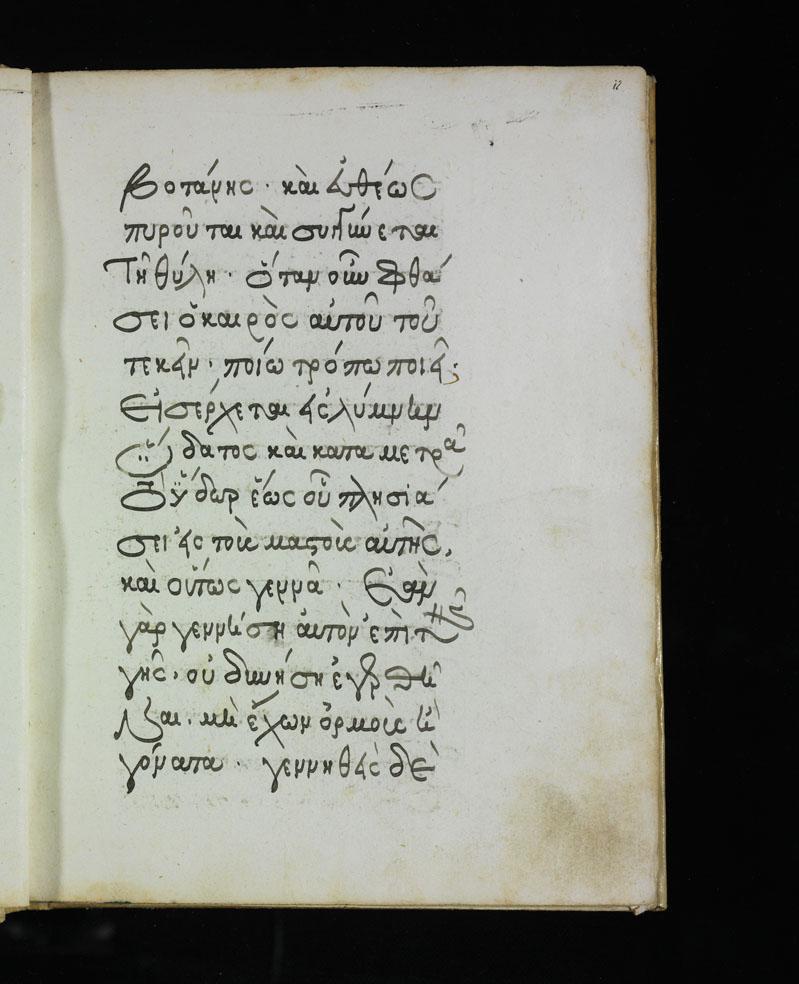 12
βοτάνης · καὶ εὐθέως
πυροῦται καὶ συνγίνεται
τῆ θύλη · ὅταν οὖν φθά
σει ὁ καιρὸς αὐτοῦ τοῦ
τεκεῖν · ποίω τρόπω ποιεῖ·
Εἰσέρχεται εἰς λύμνην
ὕδατος καὶ καταμετρᾶ
τὸ ὕδωρ ἕως οὗ πλησιά
σει εἰς τοὺς μαστοὺς αὐτῆς,
καὶ οὕτως γεννᾶ · Ἐὰν
γὰρ γεννήση αὐτὸν ἐπὶ τῆς
γῆς · οὐ δυνήση ἐγερθῆ
ναι · μὴ ἔχων ὁρμοὺς ἢ
γόνατα · γεννηθεὶς δὲ